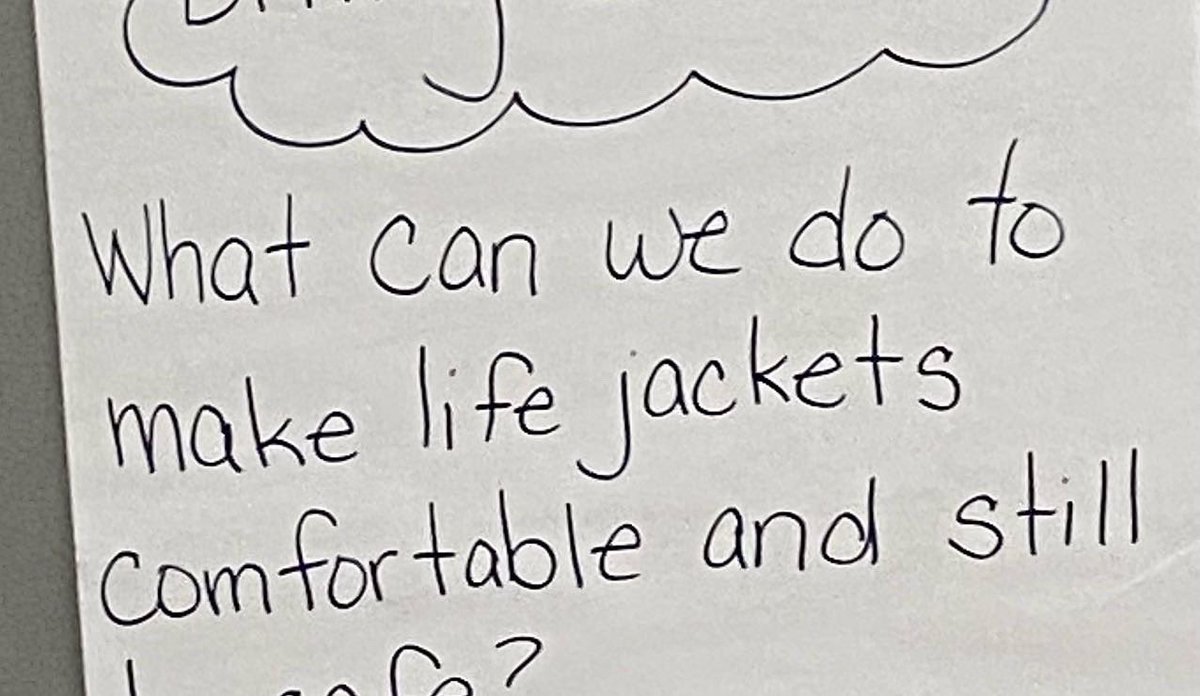 What can we do to
make life jackets
comfortable and still
be safe?